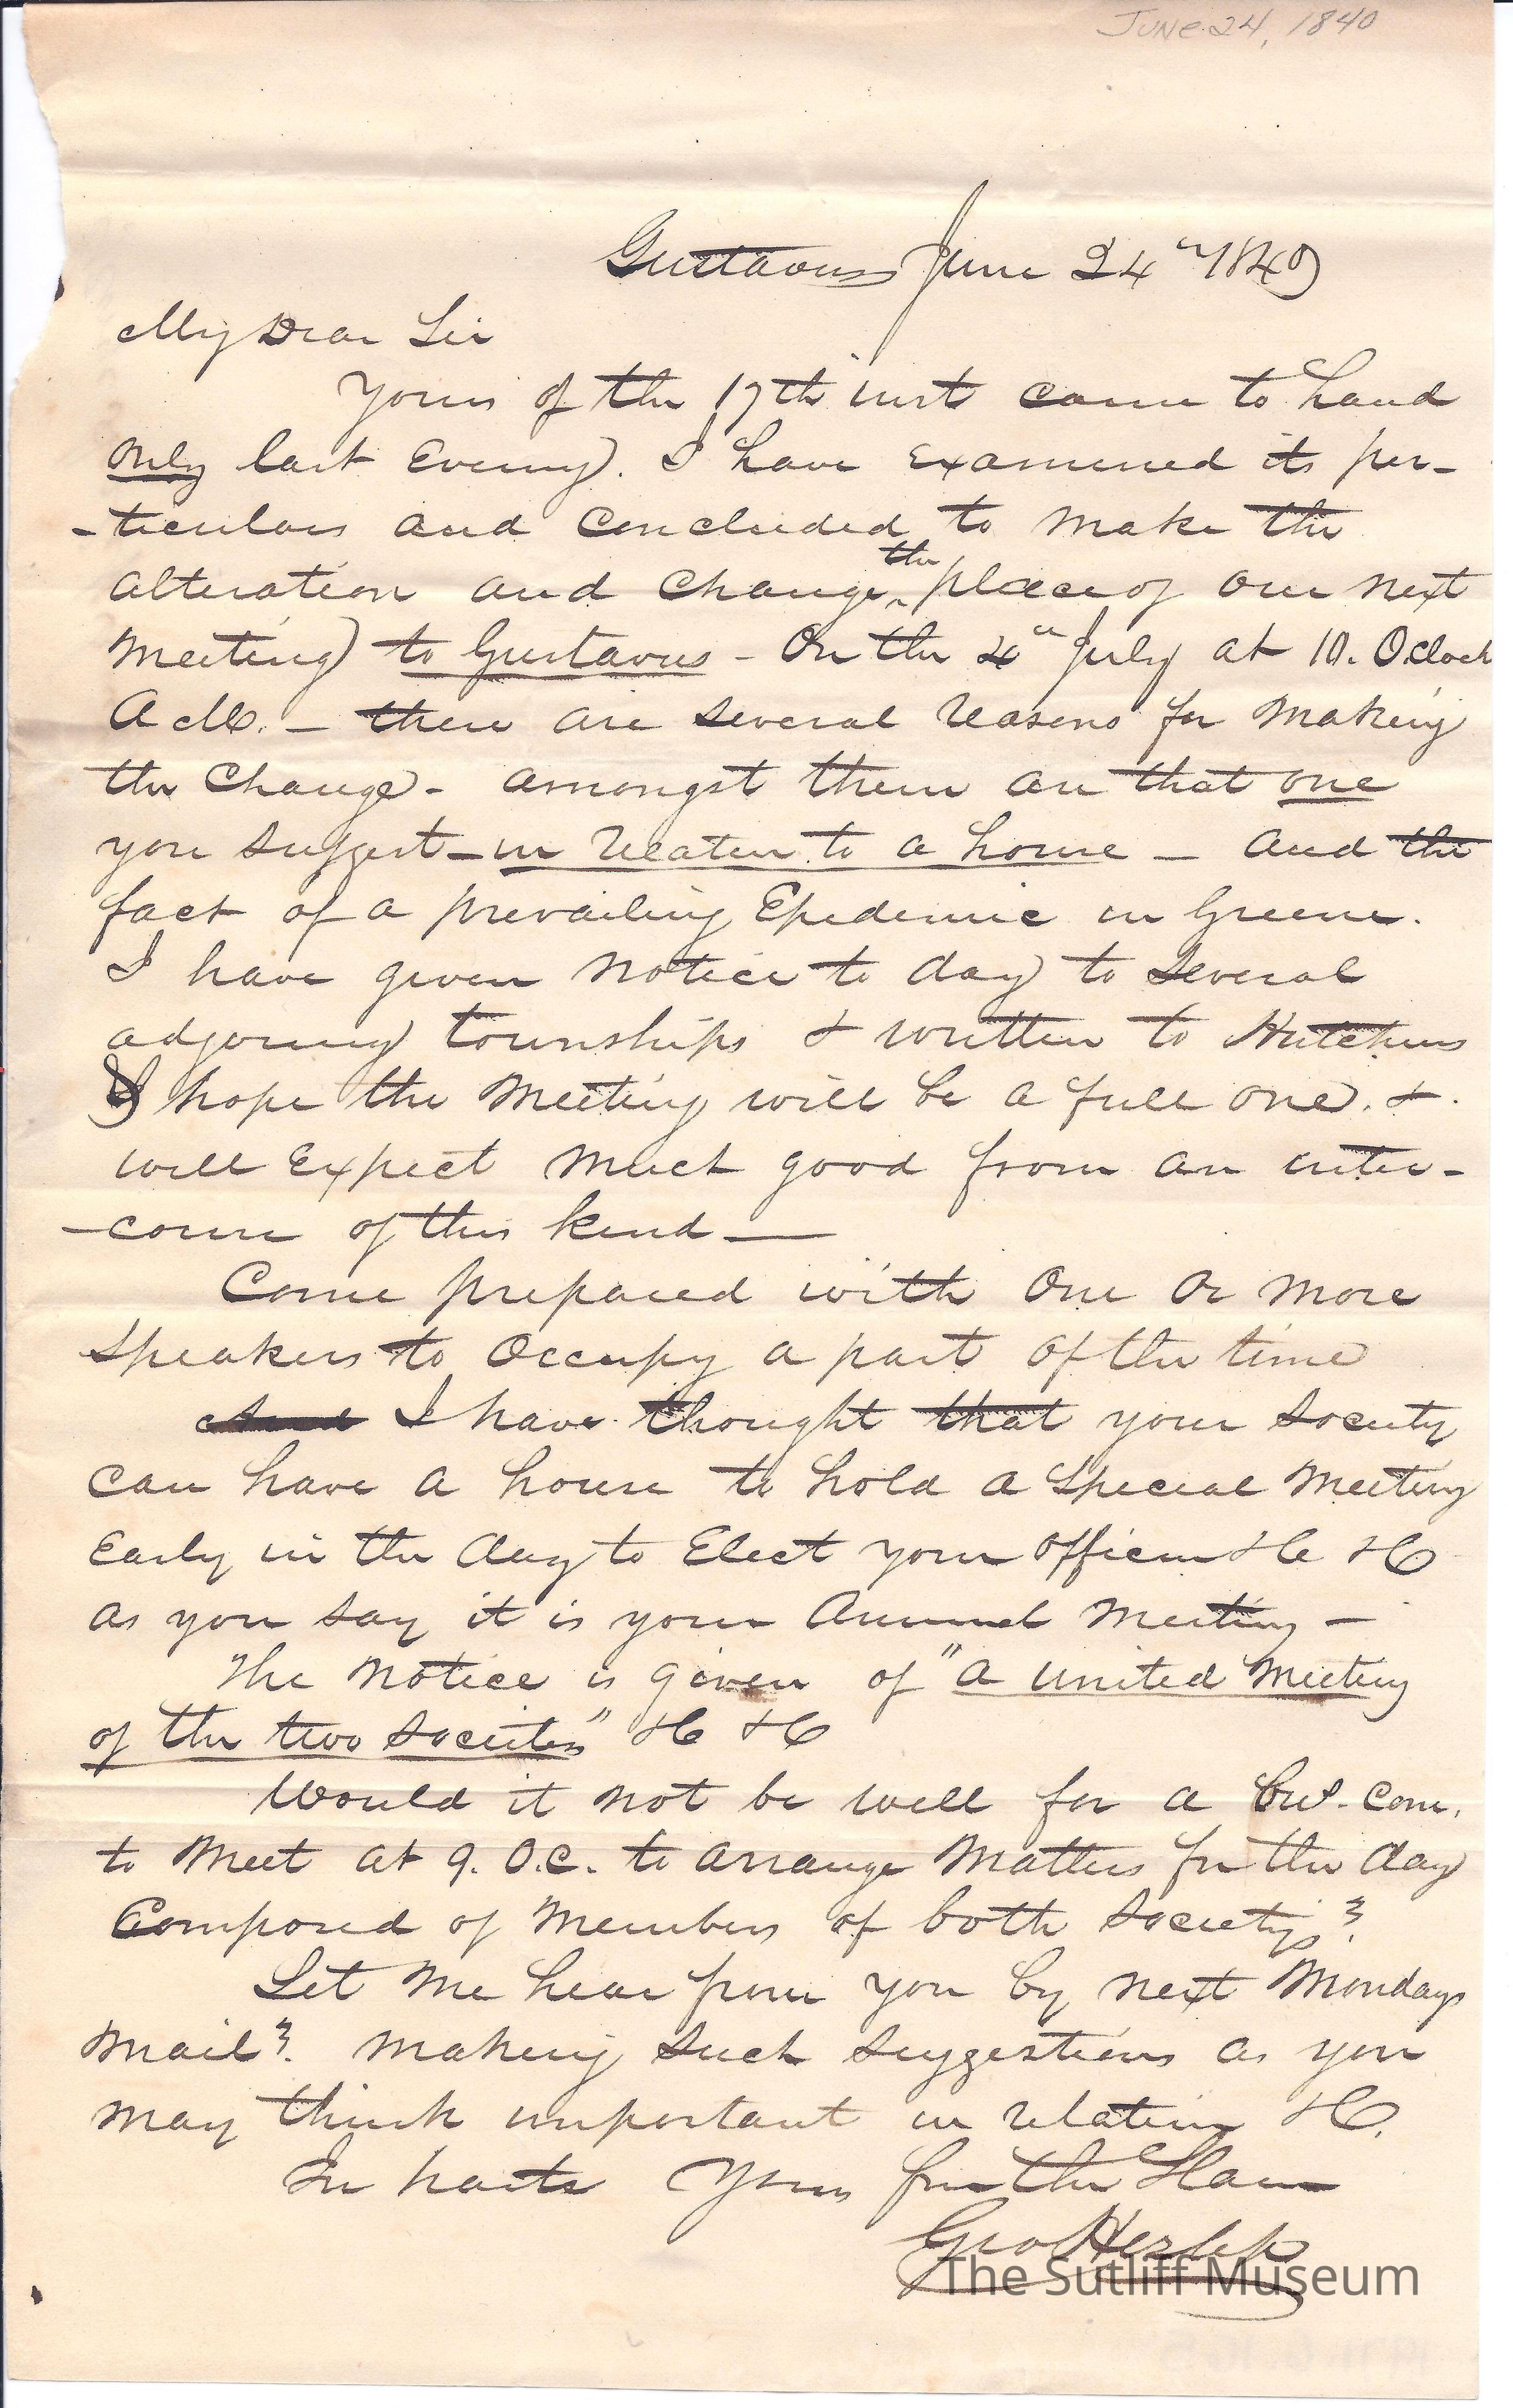 June 24, 1840
Gustavus June 24th 1840
My Dear Sir
Yours of the 17th inst came to hand
only last Evening. I have examined its per-
-ticulars and concluded to make the
alteration and Change the place of our next
Meeting to Gustavus - On the 4th July at 10. Oclock
A M. - there are several reasons for Making
the Change - amongst them are that one
you suggest - in relation to a house - and the
fact of a prevailing Epedemic in Greene.
I have given notice to day to several
adjoining townships & written to Hutchins
I hope the Meeting will be a full one. &.
will Expect much good from an inter-
-course of this kind —
Come prepared with One Or More
Speakers to Occupy a part of the time
And I have thought that your Society
can have a house to hold a Special Meeting
Early in the day to Elect your Officers &c &c
as you say it is your Annual Meeting -
The Notice is given of "a united Meeting
of the two Societies" &c &c
Would it not be well for a Com.
to Meet at 9. O.C. to arrange Matters for the day
Composed of Members of both Societys?
Let Me hear from you by next Mondays
Mail? Making such suggestions as you
may think important in relation &c.
In haste Yours for the Slave
Geo Hezlep
The Sutliff Museum